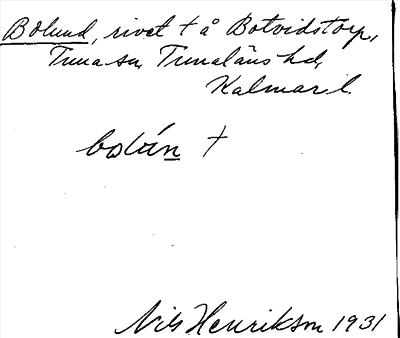 Bolund, rivet t å Botvidstorp,
Tuna sn, Tunaläns hd,
Kalmar l.
bolún t
Nils Henrikson 1931